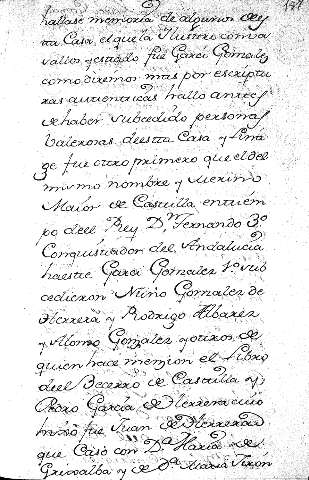 hallase memoria de algunos desta
Casa, el que la Ilustro con va
sallos y estado fue Garci Gomalez
como diremos mas por escriptu
ras autenticas hallo antes
de haber subcedido personas
valerosas deesta Casa y Lina
ge fue otro primero que el del
mismo nombre y Merino
Maior de Castilla en tiem
po deel Rey D.n Fernando 3.o
Conquistador del Andalucia
haestre Garci Gomalez 1.o sub
cedieron Nuño Gomalez de
Herrera y Rodrigo Albarez
y Alonso Gomalez y otros de
quien hace menzion el Libro
deel Becerro de Castilla y
Pedro Garcia de Herrera cuio
hixo fue Juan de Herrera
que Casò con D.a Maria de
Grixalba y de D.a Maria Tixon